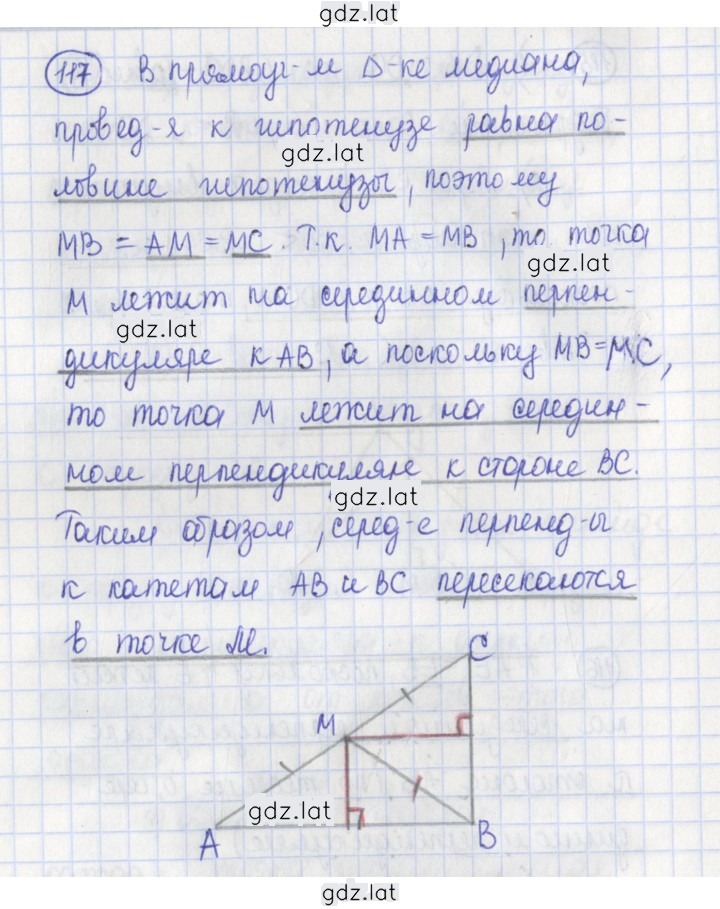 gdz.lat
117 В прямоуг-м Δ-ке медиана,
провед-я к гипотенузе равна по-
gdz.lat
ловине гипотенузы, поэтому
MB = AM = MC. Т.к. MA = MB, то точка
gdz.lat
M лежит на серединном перпен-
gdz.lat
дикуляре к AB, а поскольку MB = MC,
то точка M лежит на середин-
ном перпендикуляре к стороне BC.
gdz.lat
Таким образом, серед-е перпенд-ы
к катетам AB и BC пересекаются
в точке M.
C
M
gdz.lat
A
B
gdz.lat